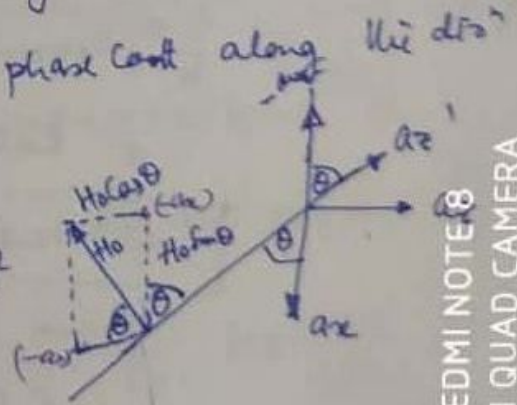 phase Const along the dirⁿ
az'
θ
H₀Cosθ
(-ax)
H₀
H₀Sinθ
θ
θ
θ
ax
REDMI NOTE 8
AI QUAD CAMERA